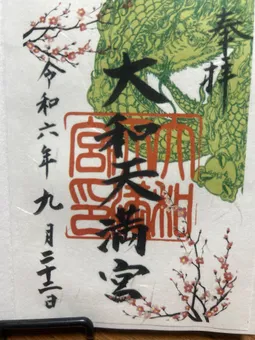 奉拝
大和天満宮
令和六年九月二十二日
大和
天満
宮印